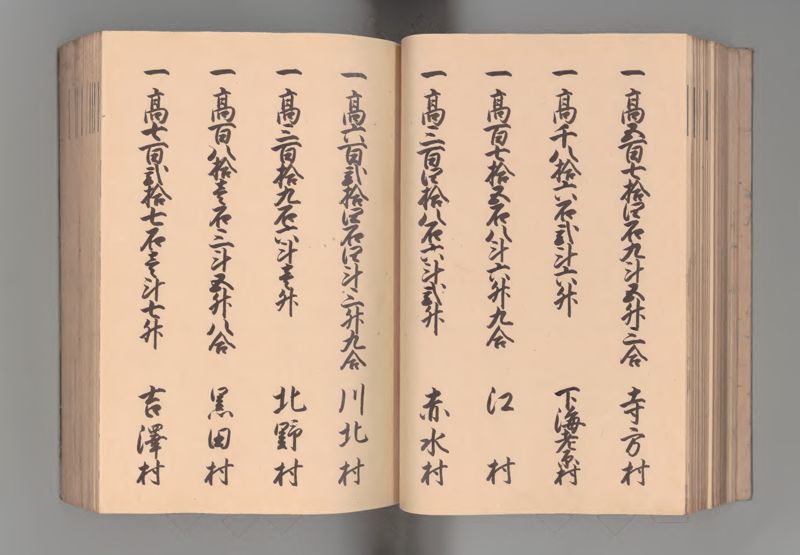 一高五百七拾四石九斗五升二合 寺方村
一高千八拾六石弐斗六升 下海老原村
一高百七拾五石八斗六升九合 江村
一高三百四拾八石六斗弐升 赤水村
一高六百弐拾四石四斗三升九合 川北村
一高三百拾九石六斗壱升 北野村
一高百八拾壱石三斗五升八合 黒田村
一高七百弐拾七石壱斗七升 吉澤村